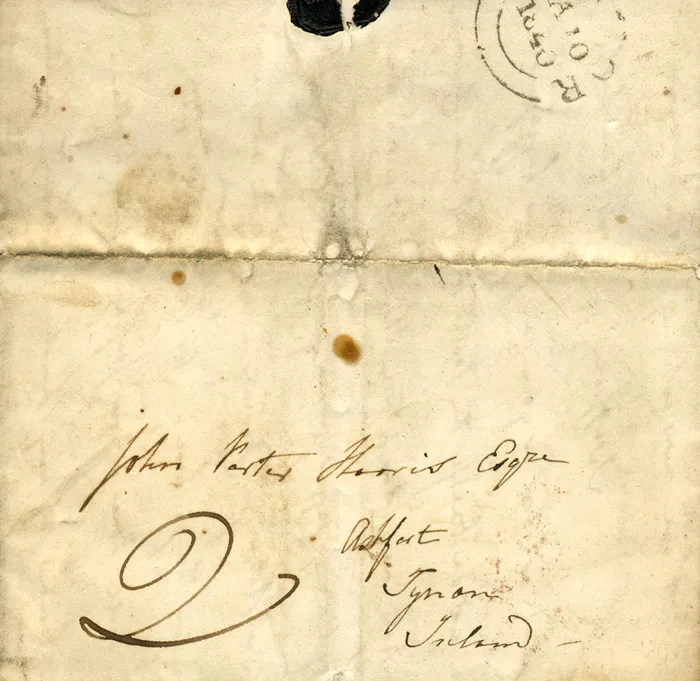 10
1840
John Porter Harris Esqre
Ashfort
2
Tynan
Ireland